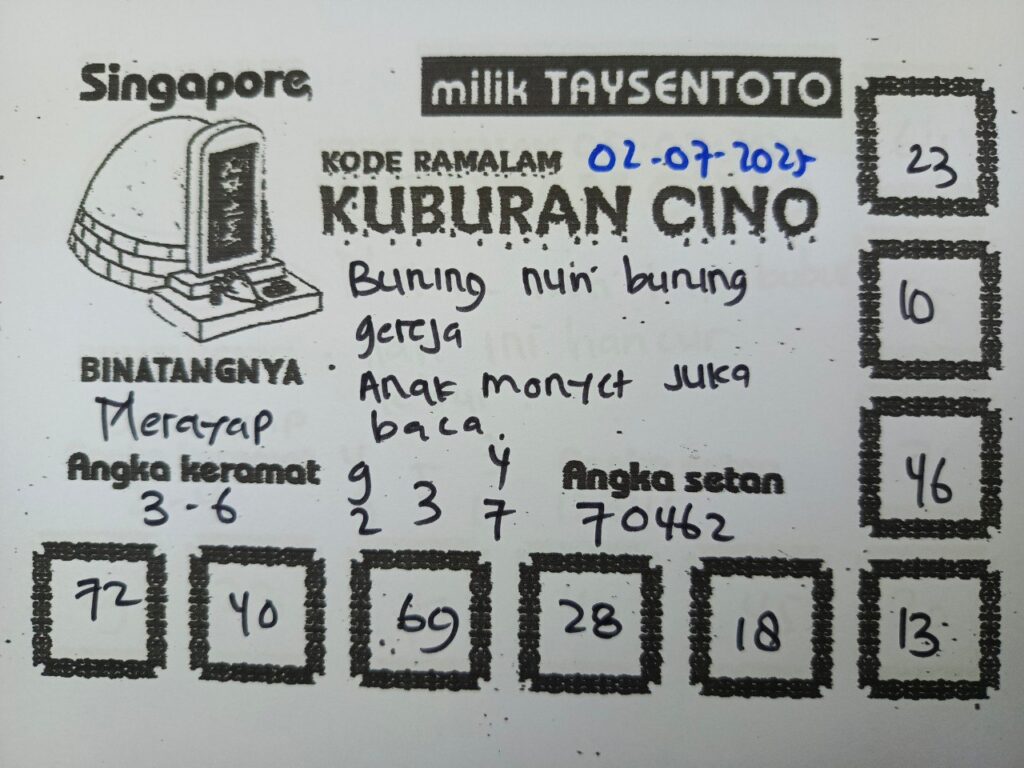 Singapore,
milik TAYSENTOTO
KODE RAMALAM 02-07-2025
KUBURAN CINO
Buning nun buning
gereja
Anak monyet Juka
baca.
BINATANGNYA
Merayap
Angka keramat
3 - 6
9 4
3
2 7
Angka setan
70462
23
10
46
72 40 69 28 18 13